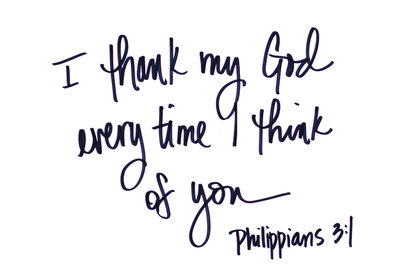 I thank my God
every time I think
of you
Philippians 3:1